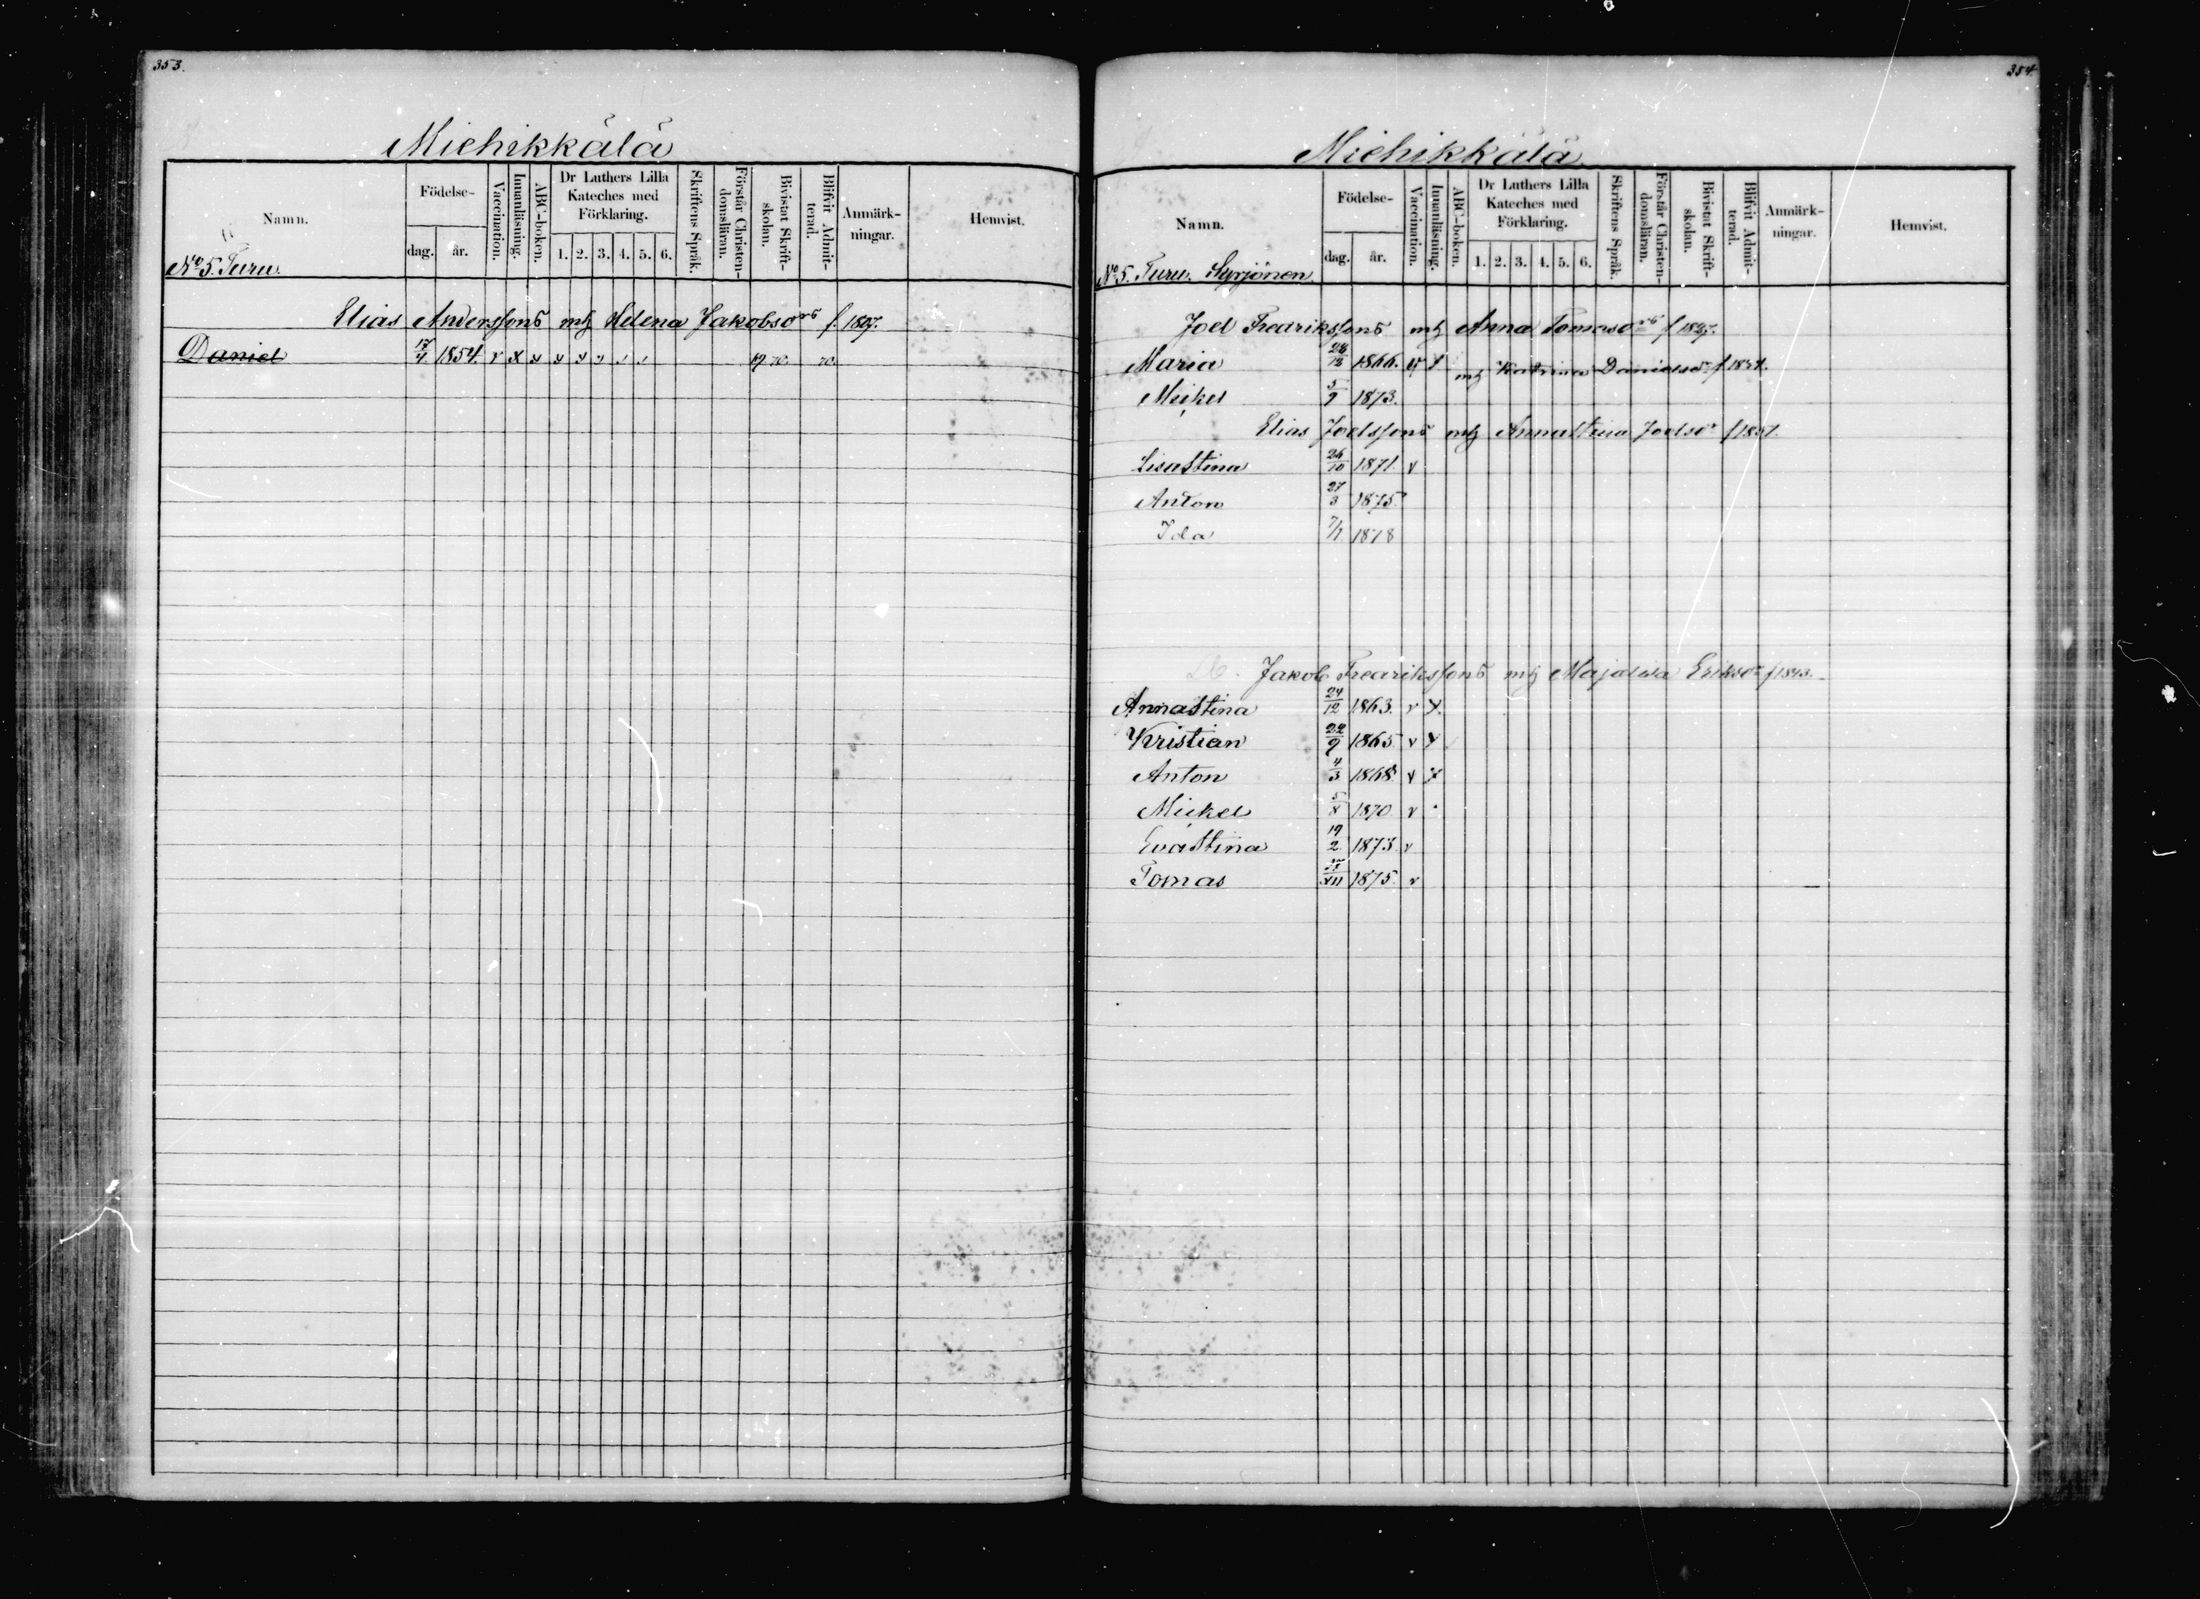 353.
Miehikkälä
Namn.
Födelse-
dag.
år.
Vaccination.
Innanläsning.
ABC-boken.
Dr Luthers Lilla Kateches med Förklaring.
1. 2. 3. 4. 5. 6.
Skriftens Språk.
Förstår Christendomsläran.
Bivistat Skriftskolan.
Blifvit Admitterad.
Anmärkningar.
Hemvist.
No 5. Turu.
Elias Anderssons mh Helena Jakobsors f. 1827.
Daniel 17/4 1854. v x x x x x 19 70. 70.
354.
Miehikkälä
Namn.
Födelse-
dag.
år.
Vaccination.
Innanläsning.
ABC-boken.
Dr Luthers Lilla Kateches med Förklaring.
1. 2. 3. 4. 5. 6.
Skriftens Språk.
Förstår Christendomsläran.
Bivistat Skriftskolan.
Blifvit Admitterad.
Anmärkningar.
Hemvist.
No 5. Turu. Syrjönen.
Joel Fredrikssons mh Anna Tomasors f 1827.
Maria 1866.
mh Katrina Danielsor f
Mickel 5/9 1873.
Elias Joelssons mh Annastina Joelsor f 1851.
Lisastina 26/10 1871. v
Anton 27/3 1875.
Ida 7/1 1878
Jakob Fredrikssons mh Majalisa Eriksor f 1843.
Annastina 24/12 1863. v x
Kristian 22/9 1865 v x
Anton 4/3 1868 v x
Mickel 5/8 1870 v
Evastina 19/2 1873. v
Tomas 1875. v